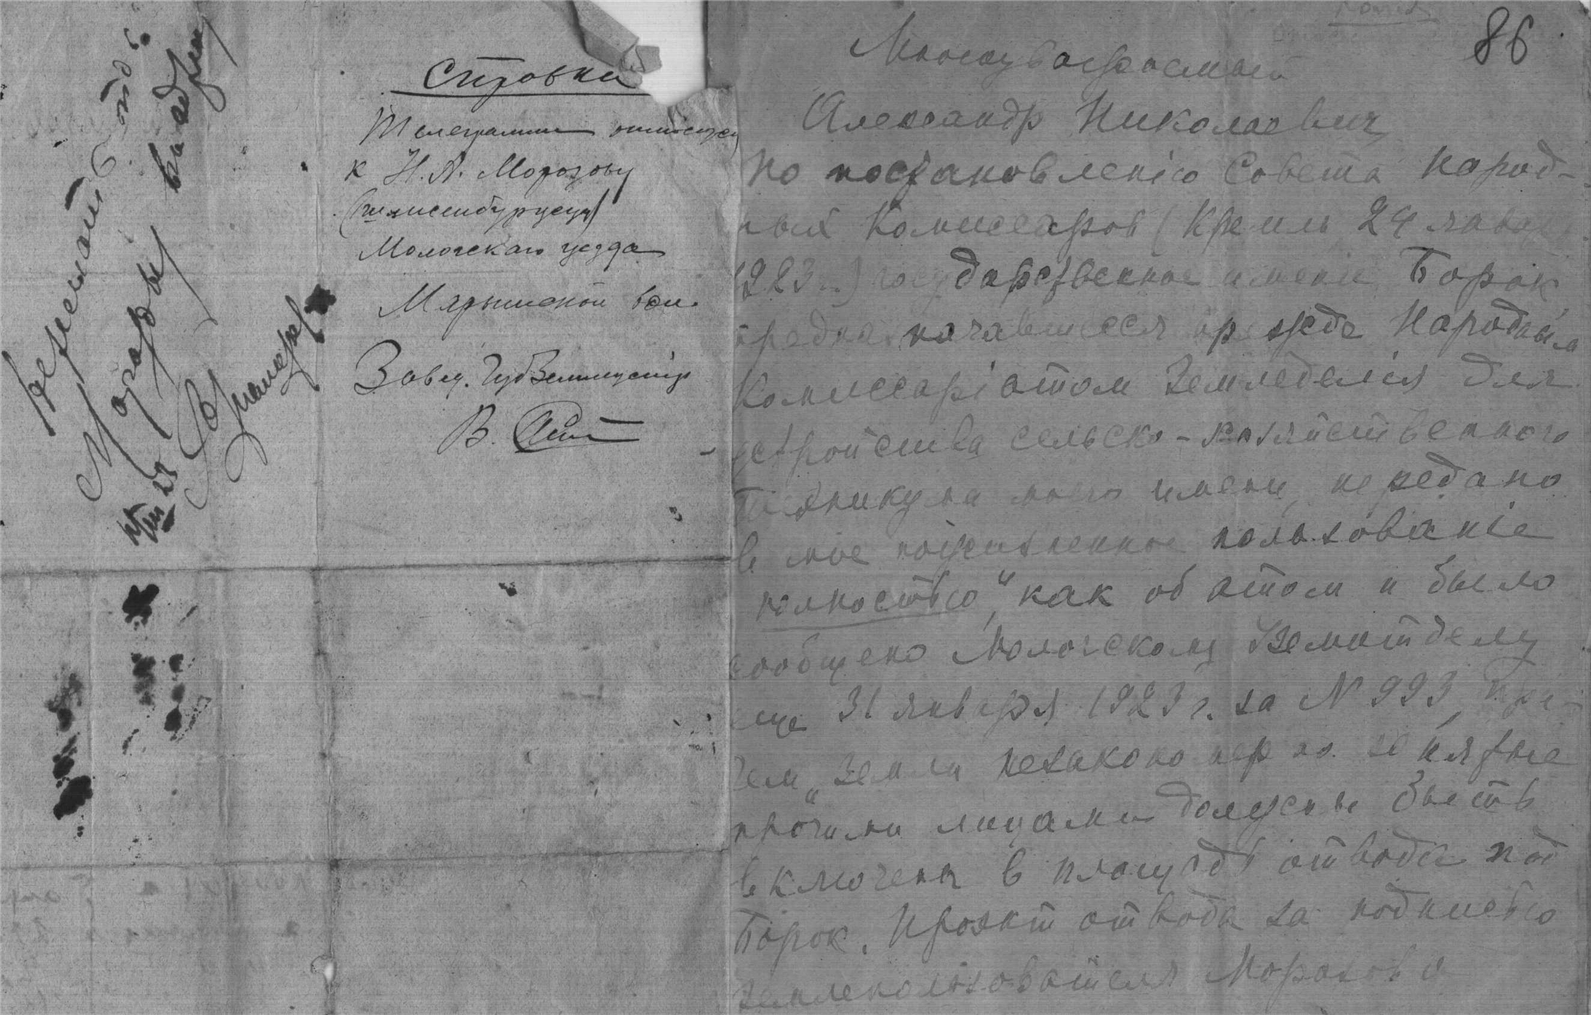 Справка
Телеграмма относится
к Н. А. Морозову
(шлиссельбургец)
Мологскаго уезда
Марьинской вол.
Завед. Губземимуще
В.
Морозову
86
Многоуважаемый
Александр Николаевич
По постановленію Совета Народ-
ных Комиссаров (Кремль 24 
1923 г.) государственное имение Борок
предназначавшееся прежде Народным
Комиссаріатом Земледелия для
устройства сельско-хозяйственного
Техникума моего имени, передано
в мое пожизненное пользованіе
„полностью“, как об этом и было
сообщено Мологскому Земотделу
еще 31 января 1923 г. за N 993, при-
чем „земли незакономерно занятые
прочими лицами должны быть
включены в площадь отвода“ под
Борок. Проэкт отвода за подписью
землепользователя Морозова